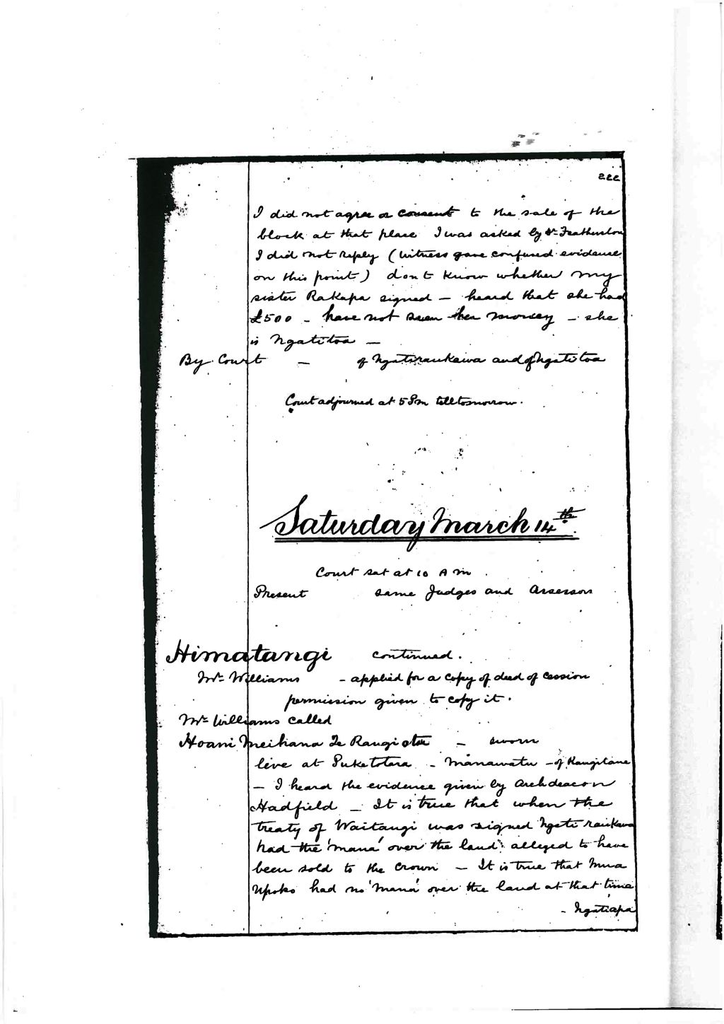 222
I did not agree or consent to the sale of the
block at that place I was asked by Dr Featherston
I did not reply (witness gave confused evidence
on this point) don't know whether my
sister Rakapa signed – heard that she had
£500 – have not seen the money – she
is Ngatitoa –
By Court – of Ngatiraukawa and of Ngatitoa
Court adjourned at 5 Pm till tomorrow.
Saturday March 14th.
Court sat at 10 A m.
Present same Judges and Assessors
Himatangi continued.
Mr Williams – applied for a copy of deed of cession
permission given to copy it.
Mr Williams called
Hoani Meihana Te Rangiotu – sworn
live at Puketotara – Manawatu – of Rangitane
– I heard the evidence given by Archdeacon
Hadfield – It is true that when the
treaty of Waitangi was signed Ngati raukawa
had the 'mana' over the land alleged to have
been sold to the Crown – It is true that Mua
Upoko had no 'mana' over the land at that time
– Ngatiapa